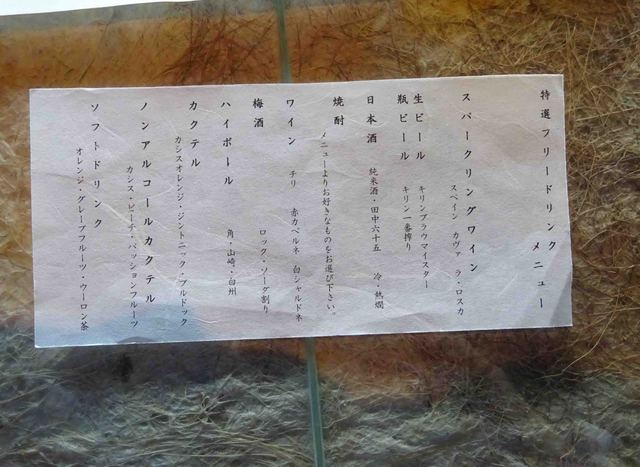 特選フリードリンク メニュー
スパークリングワイン
スペイン カヴァ ラ・ロスカ
生ビール キリンブラウマイスター
瓶ビール キリン一番搾り
日本酒 純米酒・田中六十五 冷・熱燗
焼酎 メニューよりお好きなものをお選び下さい。
ワイン チリ 赤カベルネ 白シャルドネ
梅酒 ロック・ソーダ割り
ハイボール 角・山崎・白州
カクテル
カシスオレンジ・ジントニック・ブルドック
ノンアルコールカクテル
カシス・ピーチ・パッションフルーツ
ソフトドリンク
オレンジ・グレープフルーツ・ウーロン茶